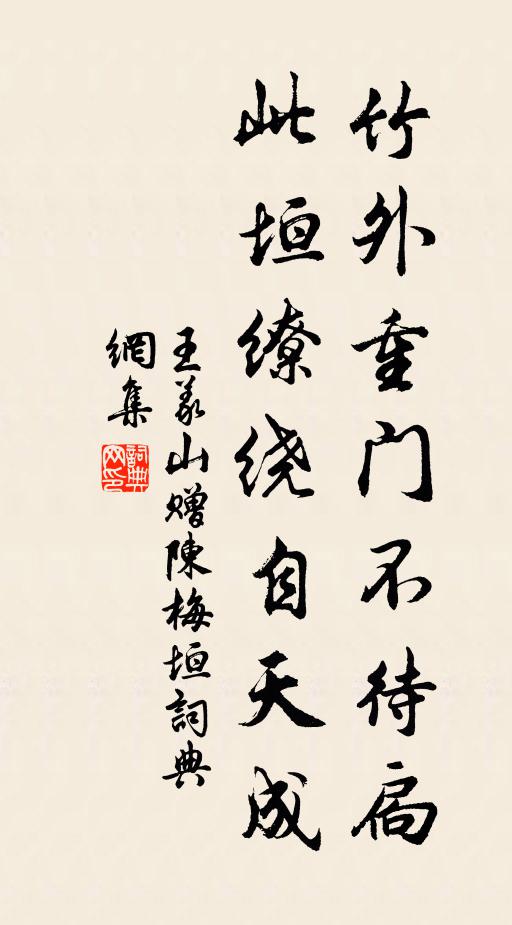 竹外重门不待扃
此垣缭绕自天成
王义山赠陳梅垣詞典
網集
詞典網印